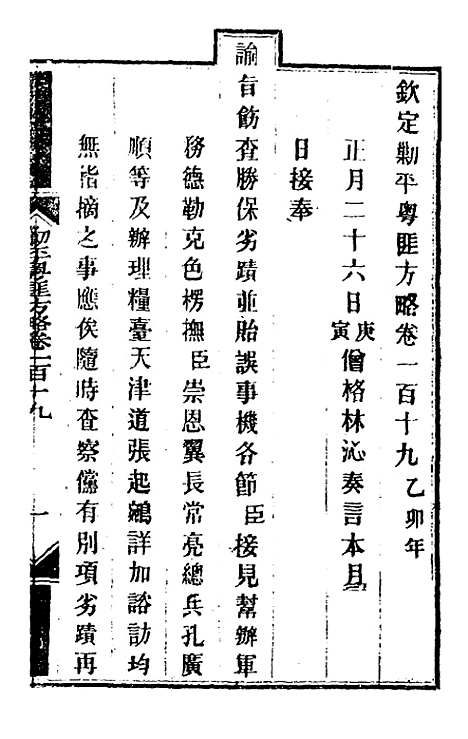 欽定剿平粵匪方略卷一百十九乙卯年
正月二十六日庚寅僧格林沁奏言本月
日接奉
諭旨飭查勝保劣蹟並貽誤事機各節臣接見幫辦軍
務德勒克色楞撫臣崇恩翼長常亮總兵孔廣
順等及辦理糧臺天津道張起鵷詳加諮訪均
無指摘之事應俟隨時查察儻有別項劣蹟再
匪方略卷一百十九
一